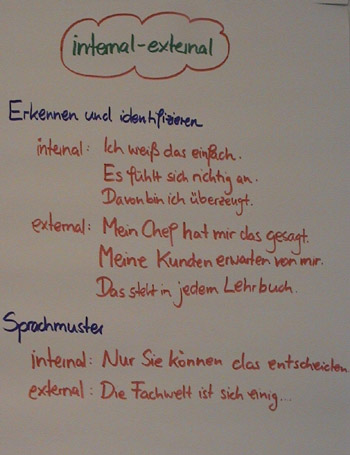 internal-external
Erkennen und identifizieren
internal: Ich weiß das einfach.
Es fühlt sich richtig an.
Davon bin ich überzeugt.
external: Mein Chef hat mir das gesagt.
Meine Kunden erwarten von mir.
Das steht in jedem Lehrbuch.
Sprachmuster
internal: Nur Sie können das entscheiden
external: Die Fachwelt ist sich einig...